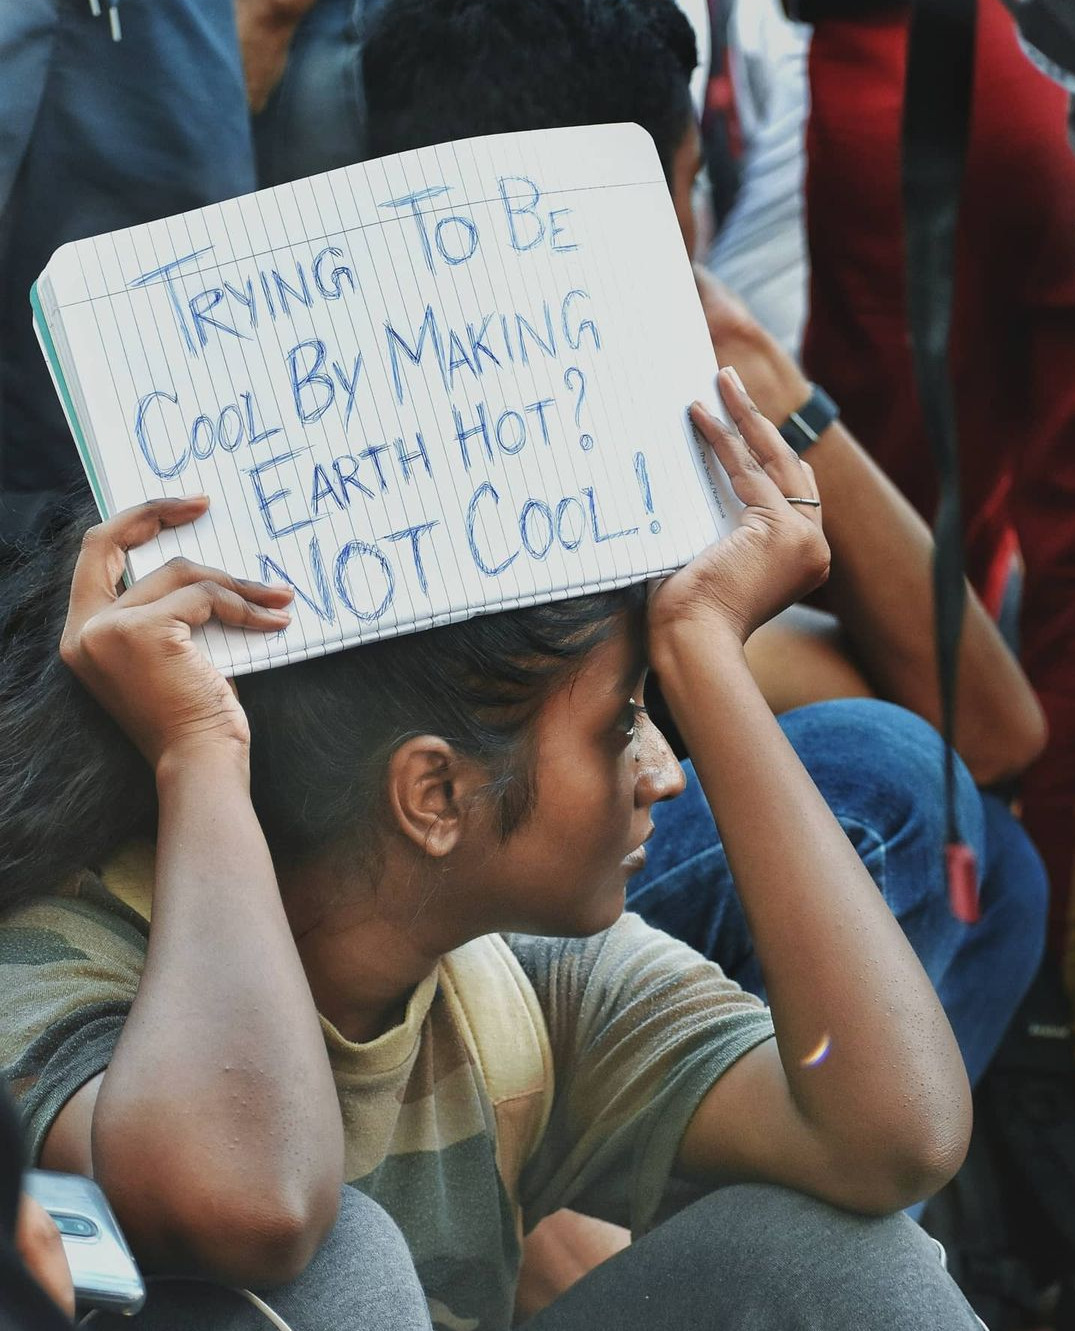 Trying To Be
Cool By Making
Earth Hot?
Not Cool!